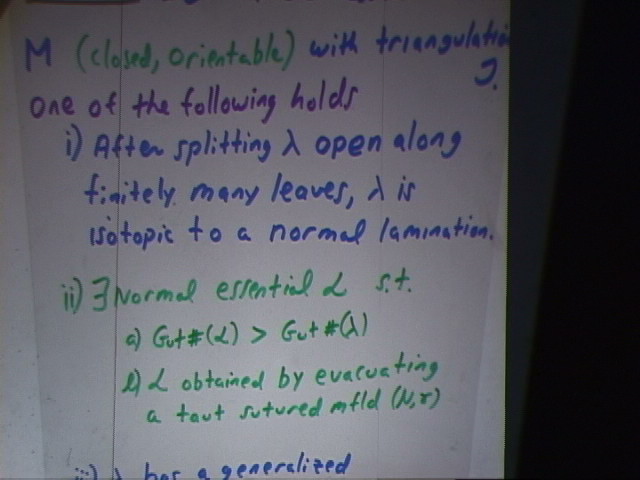 M (closed, orientable) with triangulation
J.
One of the following holds
i) After splitting λ open along
finitely many leaves, λ is
isotopic to a normal lamination.
ii) ∃ Normal essential L s.t.
a) Gut#(L) > Gut#(λ)
b) L obtained by evacuating
a taut sutured mfld (N,γ)
iii) λ has a generalized